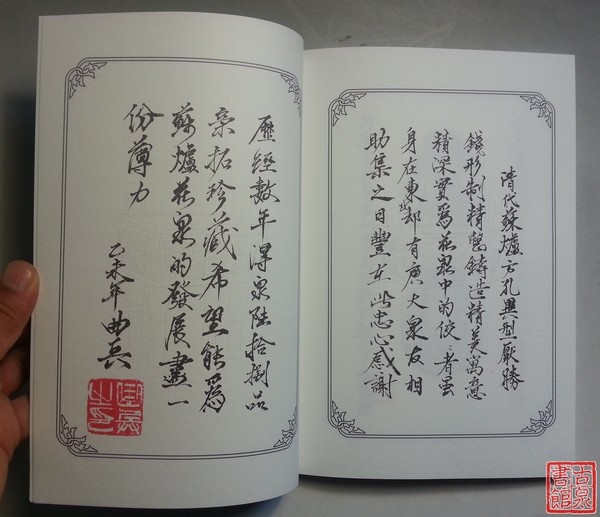 清代蘇爐方孔異型厭勝
錢形制精整鑄造精美寓意
精深實爲花泉中的佼者虽
身在東北却有廣大泉友相
助集之日豐在此忠心感謝
歷經數年得泉陸拾捌品
亲拓珍藏希望能爲
蘇爐花泉的發展盡一
份薄力
乙未年曲兵
古泉書館